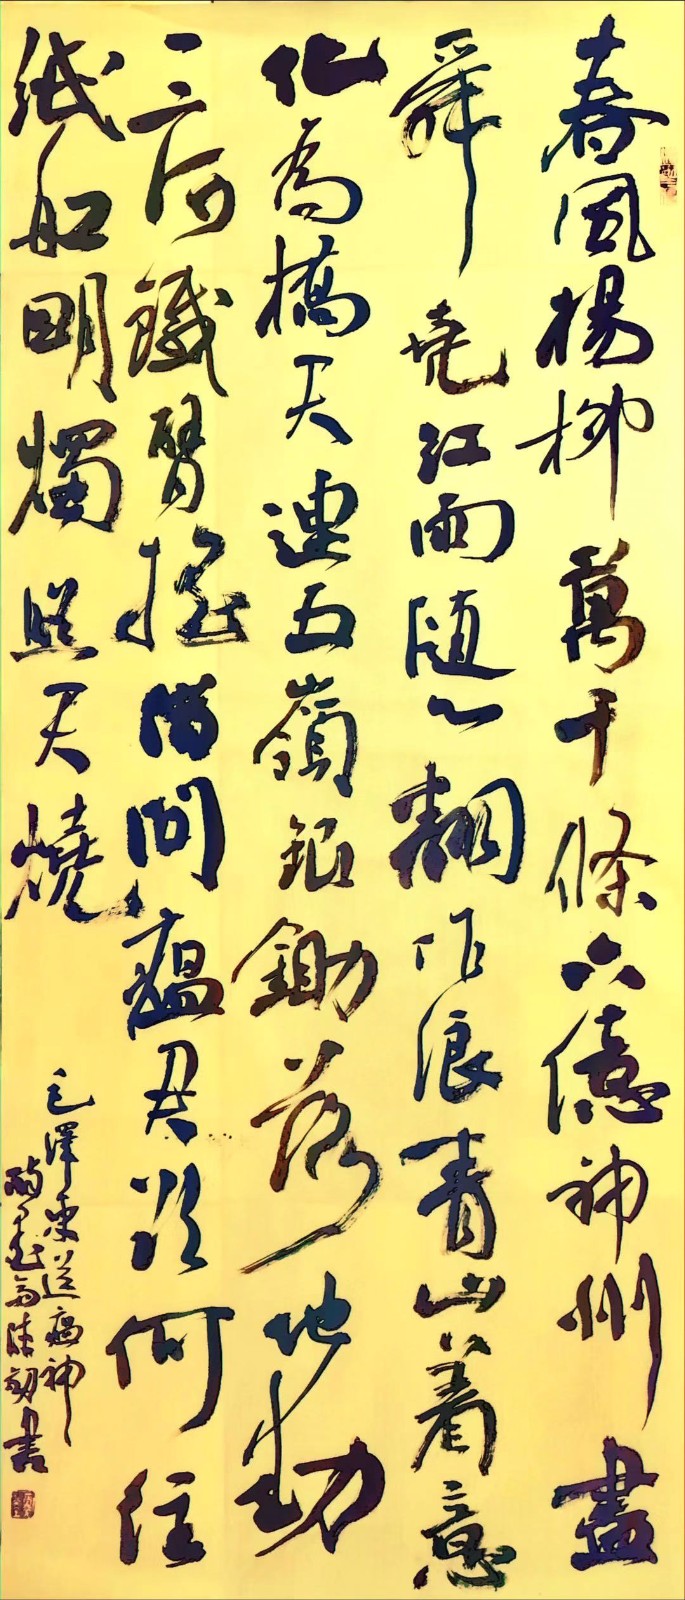 春風楊柳萬千條六億神州盡
舜堯紅雨随心翻作浪青山着意
化為橋天連五嶺銀鋤落地動
三河鐵臂摇借問瘟君欲何往
紙船明燭照天燒
毛澤東送瘟神
書